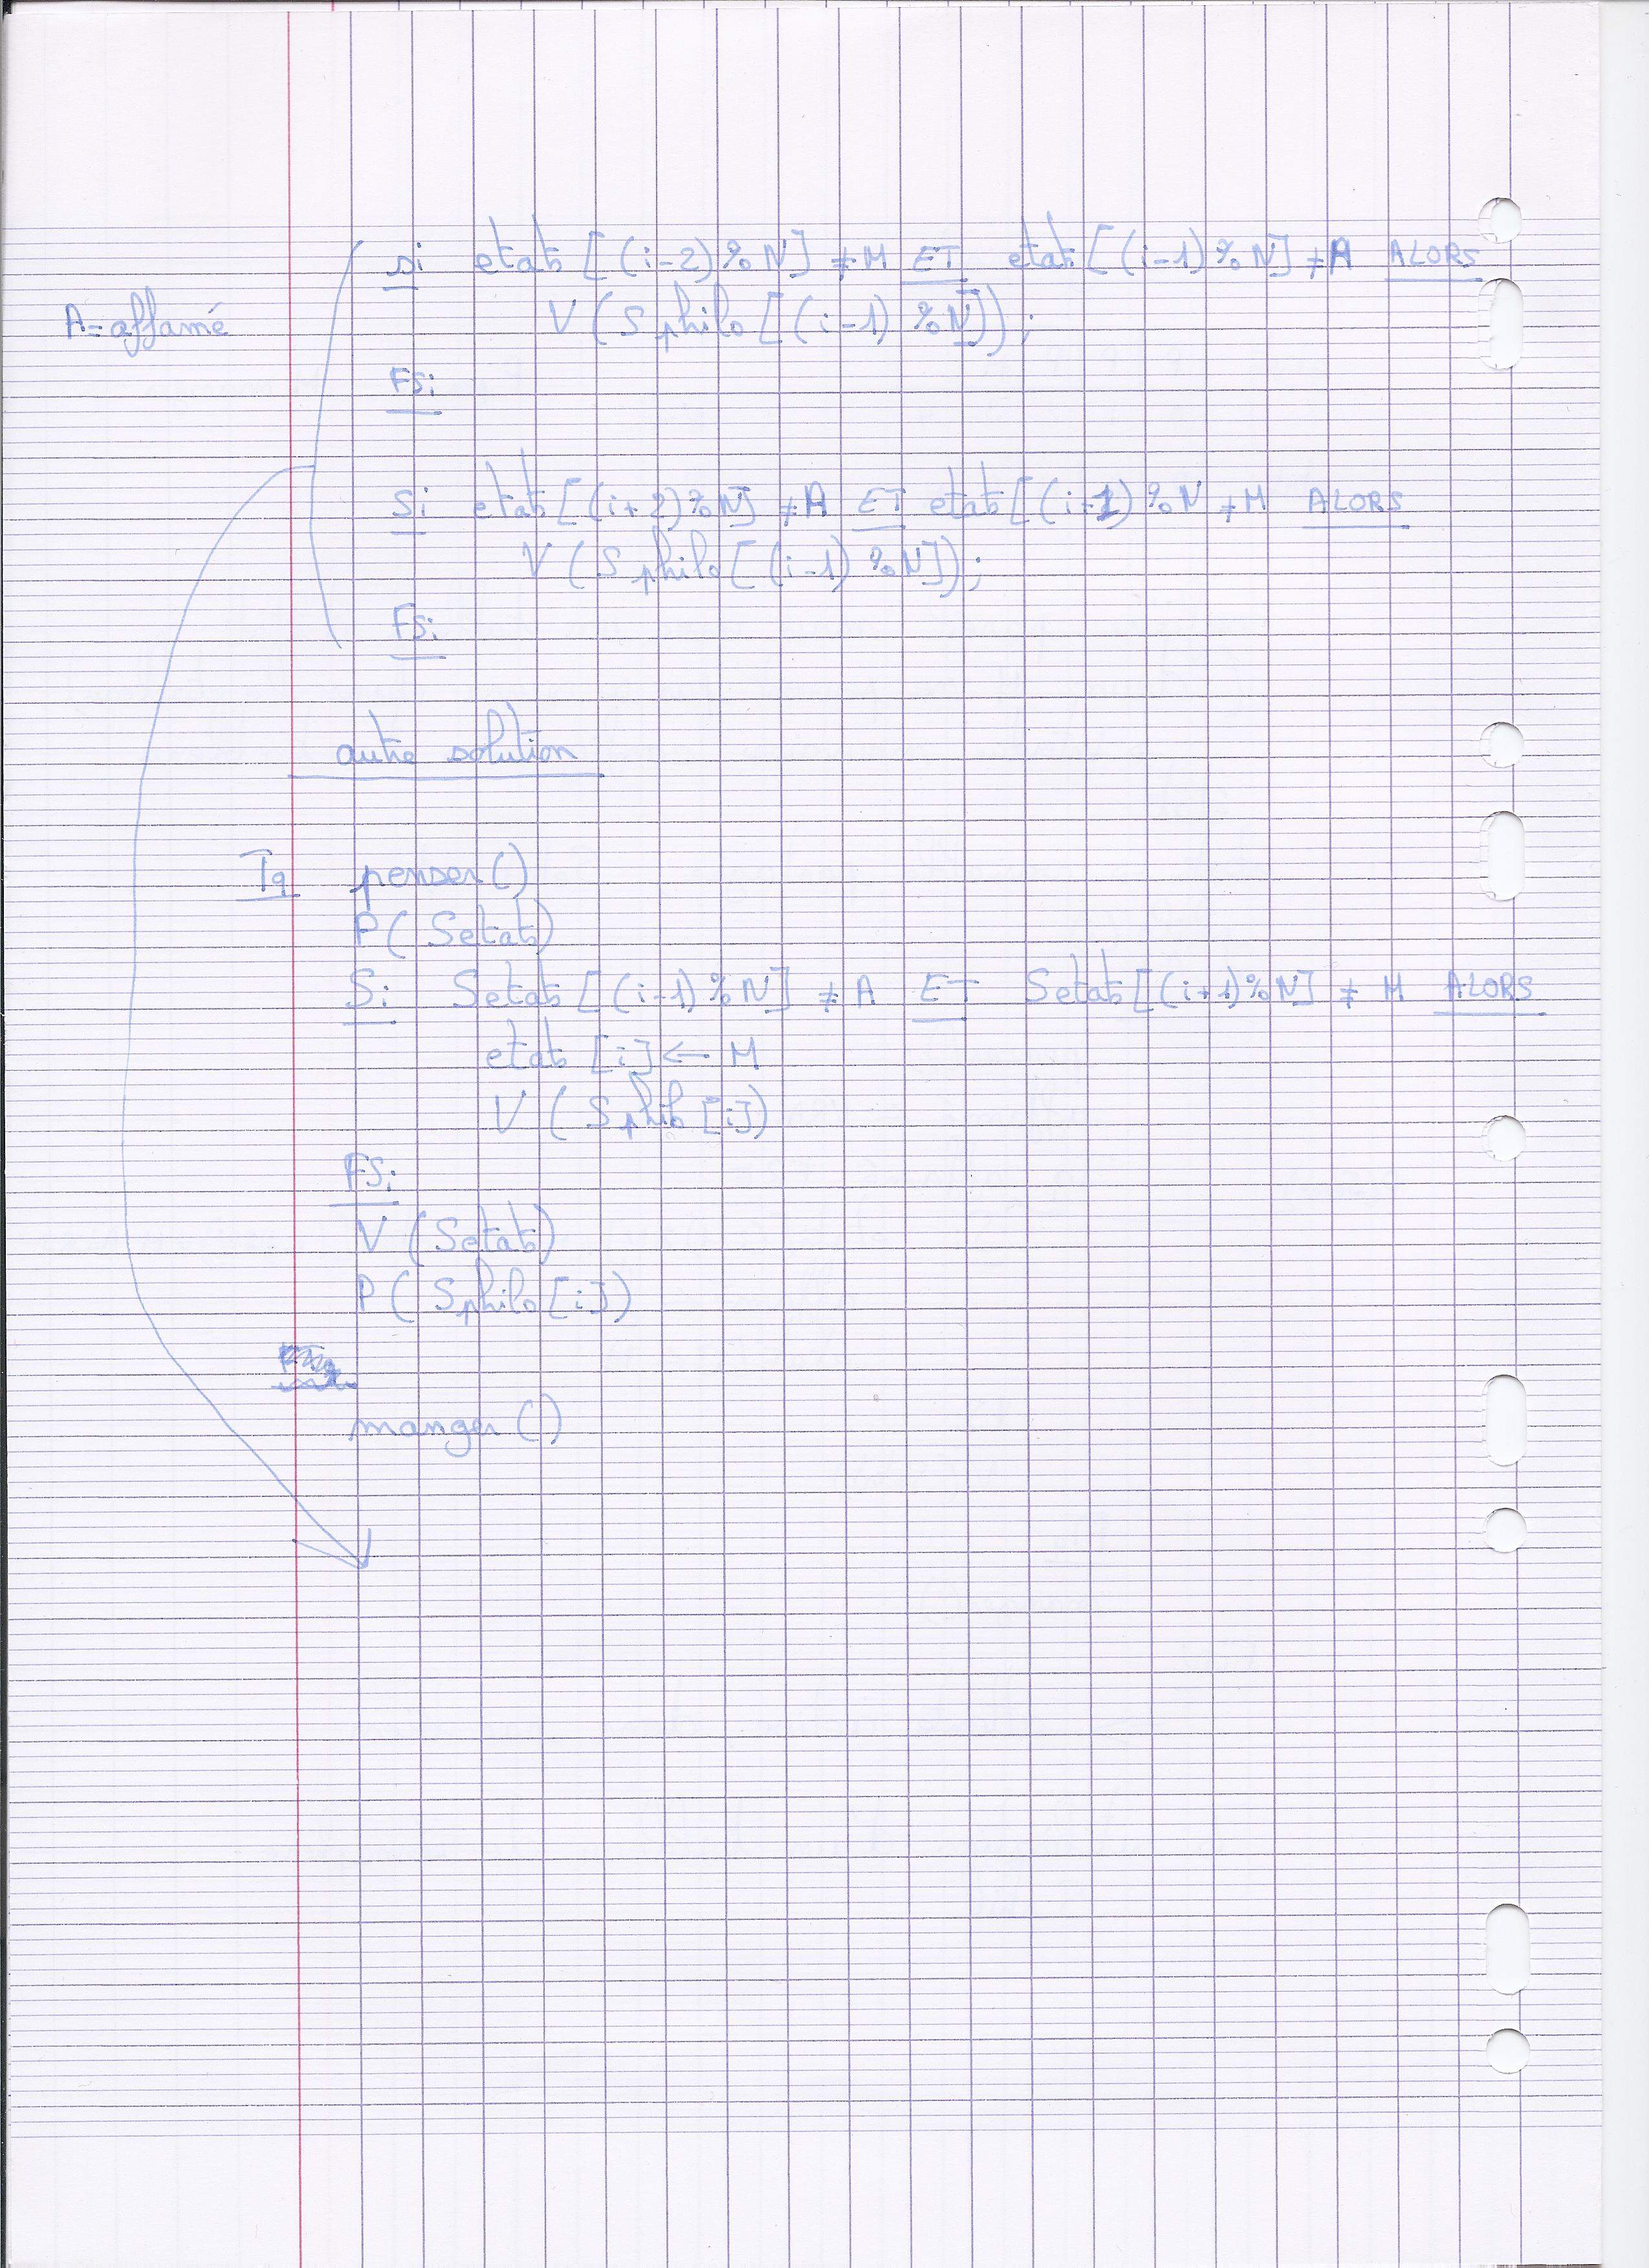 si etats [(i-2)%N] ≠M ET etats[(i-1)%N] ≠A ALORS
A=affamé
V(Sphilo[(i-1)%N]);
FSi
Si etats[(i+2)%N] ≠A ET etats[(i+1)%N ≠M ALORS
V(Sphilo[(i-1)%N]);
FSi
autre solution
Tq penser()
P(Setats)
Si Setats[(i-1)%N] ≠ A ET Setats[(i+1)%N] ≠ M ALORS
etats [i] ← M
V (Sphilo[i])
FSi
V (Setats)
P(Sphilo[i])
manger()